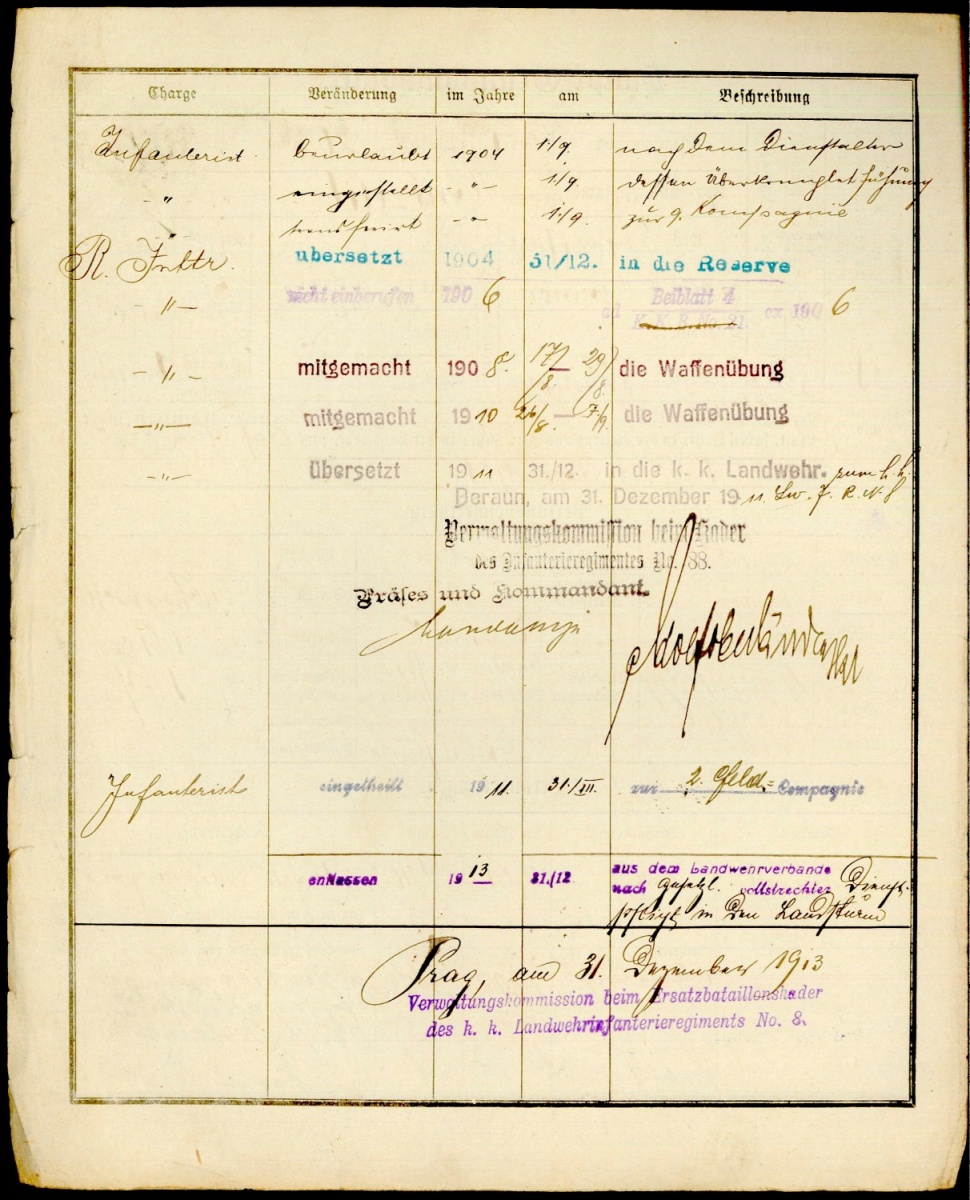 Charge Veränderung im Jahre am Beschreibung
Infanterist beurlaubt 1904 1/9 nach dem Dienstalter
-"- eingestellt -"- 1/9 dessen Überkomplet führung
-"- transferirt -"- 1/9. zur 9. Kompagnie
R. Inftr. übersetzt 1904 31/12. in die Reserve
-"- nicht einberufen 1906 ad Beiblatt 4 ex 1906
K. K. B. No 21.
-"- mitgemacht 1908. 17/8. — 29/8. die Waffenübung
-"- mitgemacht 1910 26/8. — 7/9. die Waffenübung
-"- übersetzt 1911 31./12. in die k. k. Landwehr. zum k. k.
Beraun, am 31. Dezember 1911. Lw. J. R. N. 8
Verwaltungskommission beim Kader
des Infanterieregimentes No. 88.
Präses und Kommandant.
Infanterist eingetheilt 1911. 31./XII. zur 2. Feld- Compagnie
entlassen 1913 31./12 aus dem Landwehrverbande
nach gesetzl. vollstreckter Dienst-
pflicht in den Landsturm
Prag, am 31. Dezember 1913
Verwaltungskommission beim Ersatzbataillonskader
des k. k. Landwehrinfanterieregiments No. 8.